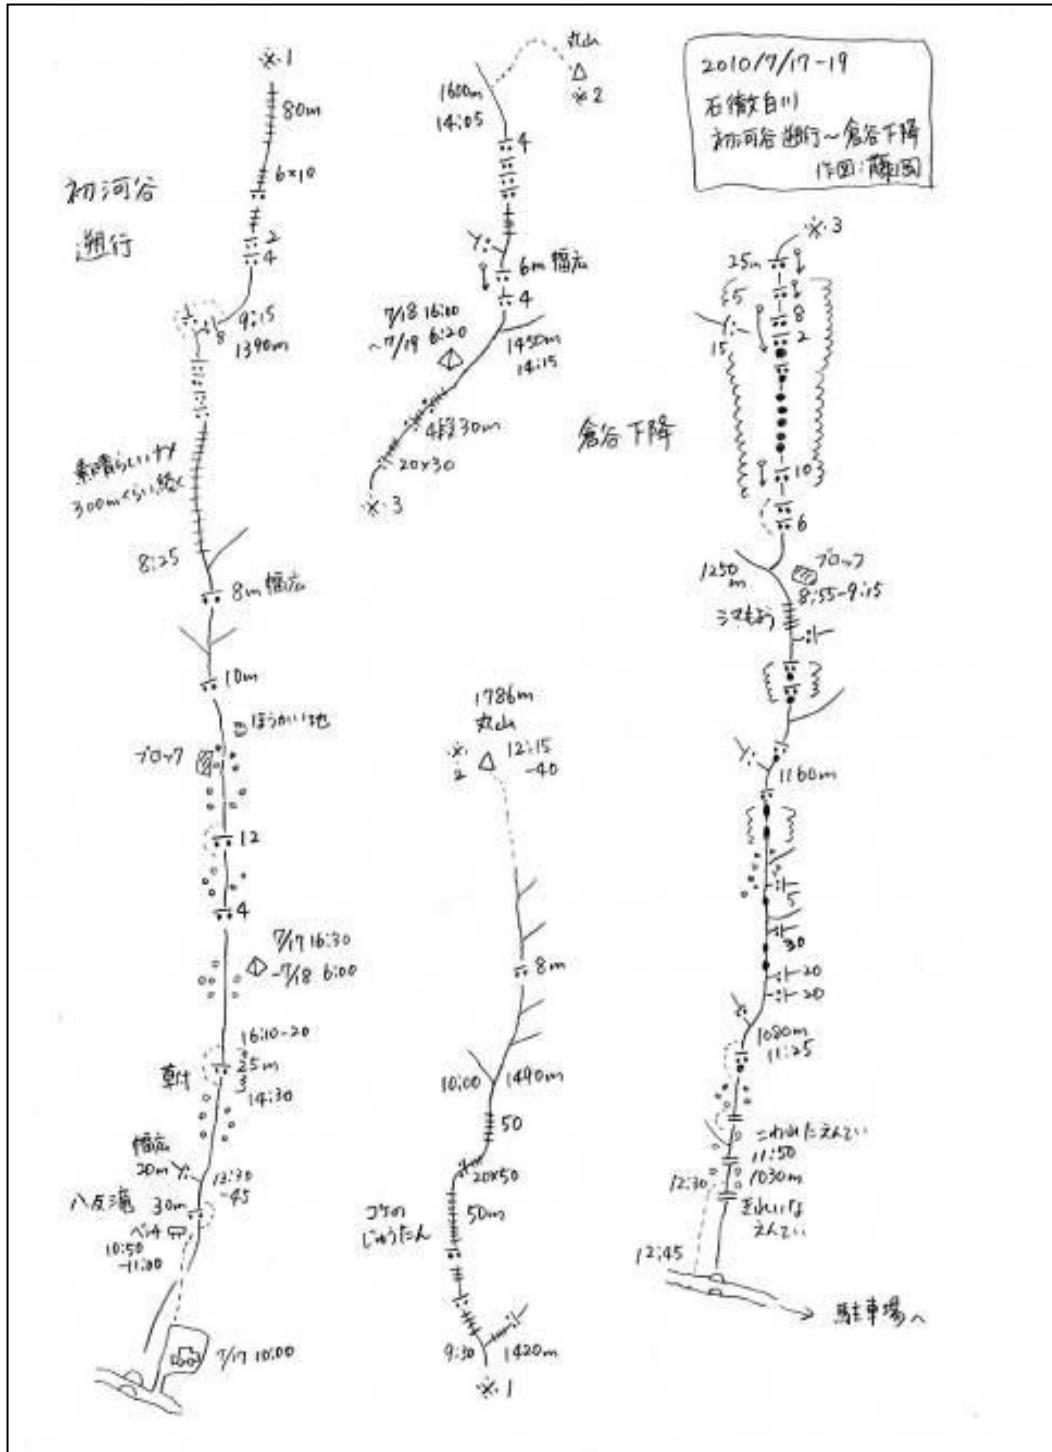 2010/7/17-19
石徹白川
初河谷遡行〜倉谷下降
作図:藤岡
初河谷
遡行
※1
80m
6×10
2
4
9:15
8
1390m
素晴らしいナメ
300mくらい続く
8:25
8m幅広
10m
ほうかい地
ブロック
12
4
7/17 16:30
-7/18 6:00
16:10-20
25m
14:30
草付
幅広
20m
13:30
-45
八反滝 30m
ベンチ
10:50
-11:00
7/17 10:00
丸山
※2
1600m
14:05
4
6m幅広
4
7/18 16:00
~7/19 6:20
1450m
14:15
4段30m
20×30
※3
1786m
丸山
※2
12:15
-40
8m
10:00
1490m
50
20×50
コケの
じゅうたん
50m
9:30
1420m
※1
倉谷下降
※3
25m
5
8
2
15
10
6
1250m
ブロック
8:55-9:15
シマもよう
1160m
5
30
20
20
1080m
11:25
こわれたえんてい
11:50
1030m
12:30
きれいな
えんてい
12:45
駐車場へ